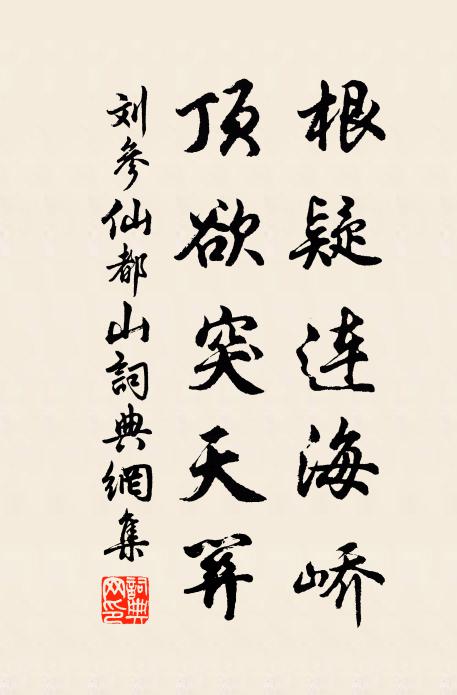 根疑連海峤
顶欲突天開
刘参仙都山詞典網集
詞典